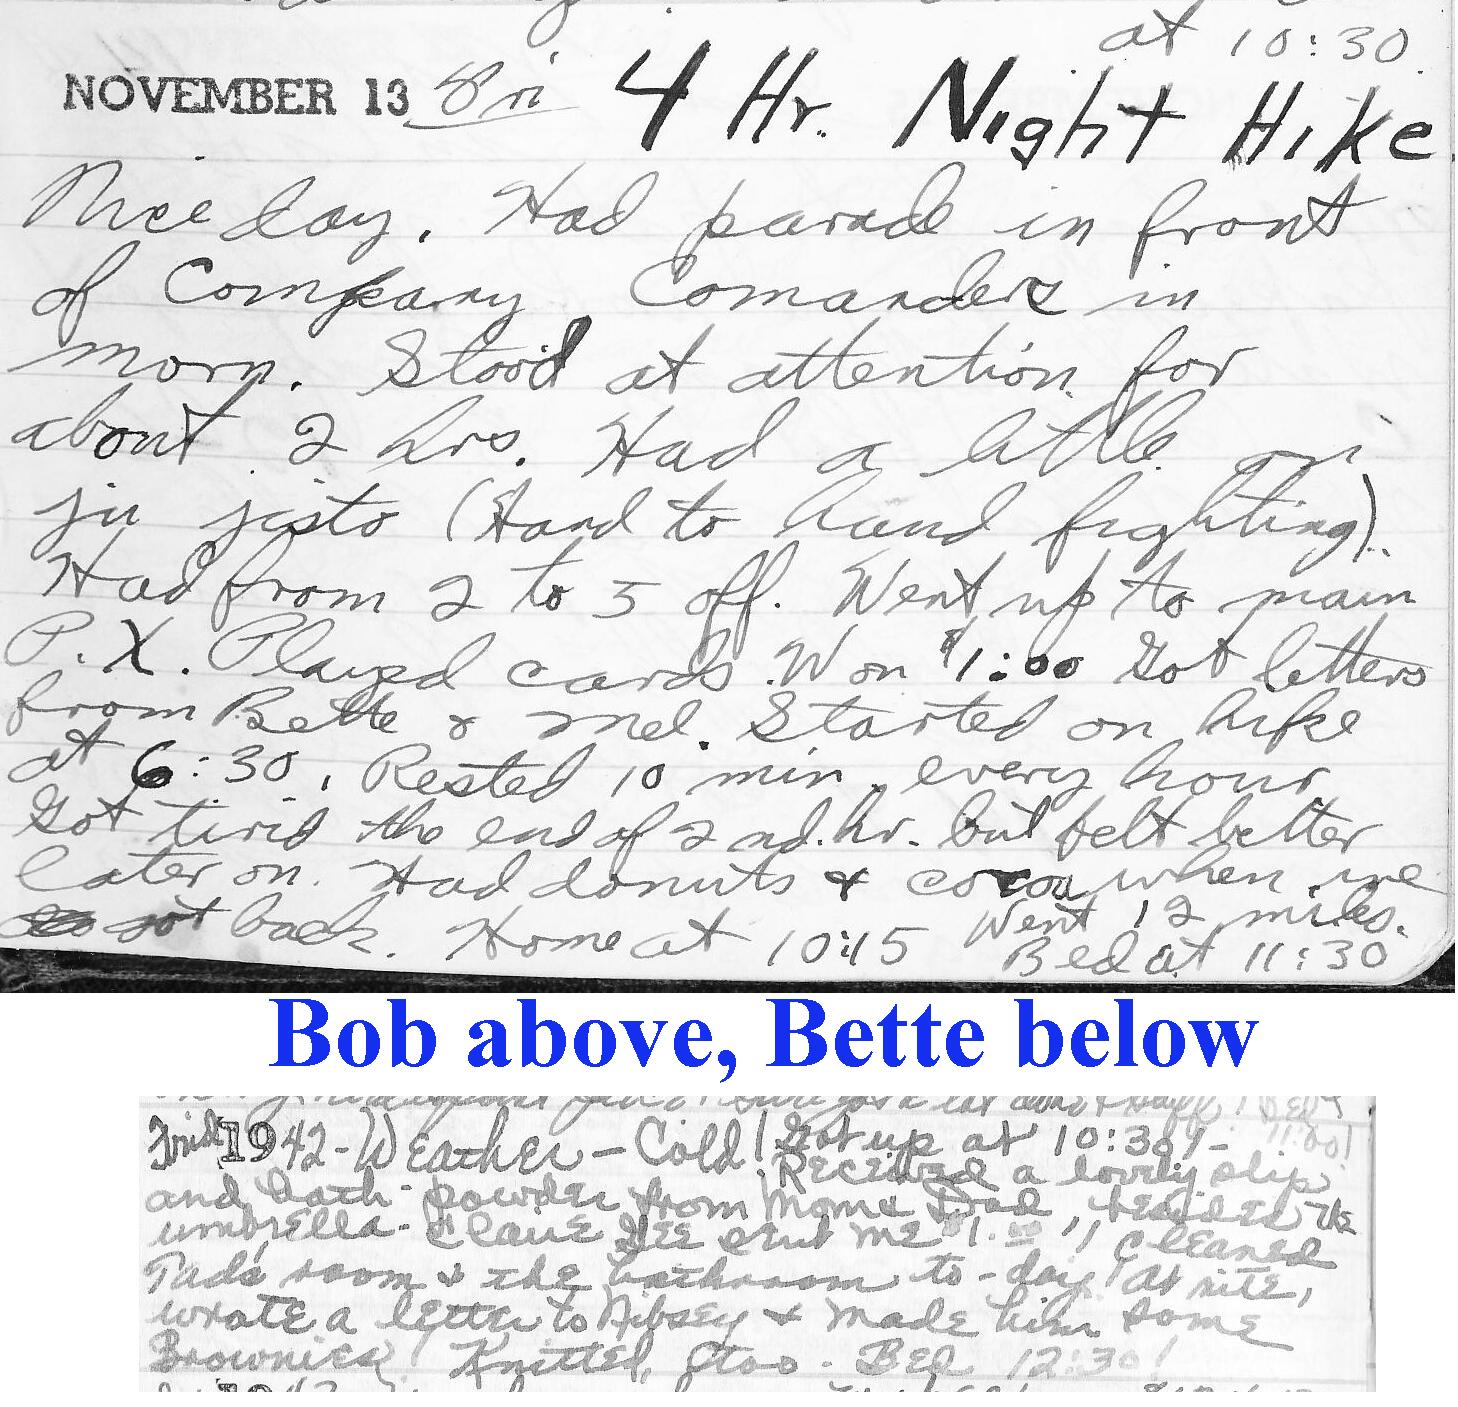 at 10:30.
NOVEMBER 13 Fri 4 Hr. Night Hike
Nice day. Had parade in front
of Company Comanders in
morn. Stood at attention for
about 2 hrs. Had a little on
ju jisto (Hand to hand fighting).
Had from 2 to 5 off. Went up to main
P.X. Played cards. Won $1:00 Got letters
from Bette & Mel. Started on hike
at 6:30. Rested 10 min. every hour
Got tirid the end of 2nd. hr. but felt better
later on. Had donuts & cocoa when we
got back. Home at 10:15 Went 12 miles.
Bed at 11:30
Bob above, Bette below
11:00!
Frid 1942 - Weather - Cold! Got up at 10:30! -
Received a lovely slip
and bath powder from Mom & Dad, besides the
umbrella - Claire Gee sent me $1.00!! Cleaned
Tads room & the bathroom to-day! At nite,
wrote a letter to Nibsey & made him some
Brownies! Knitted, too. Bed 12:30!